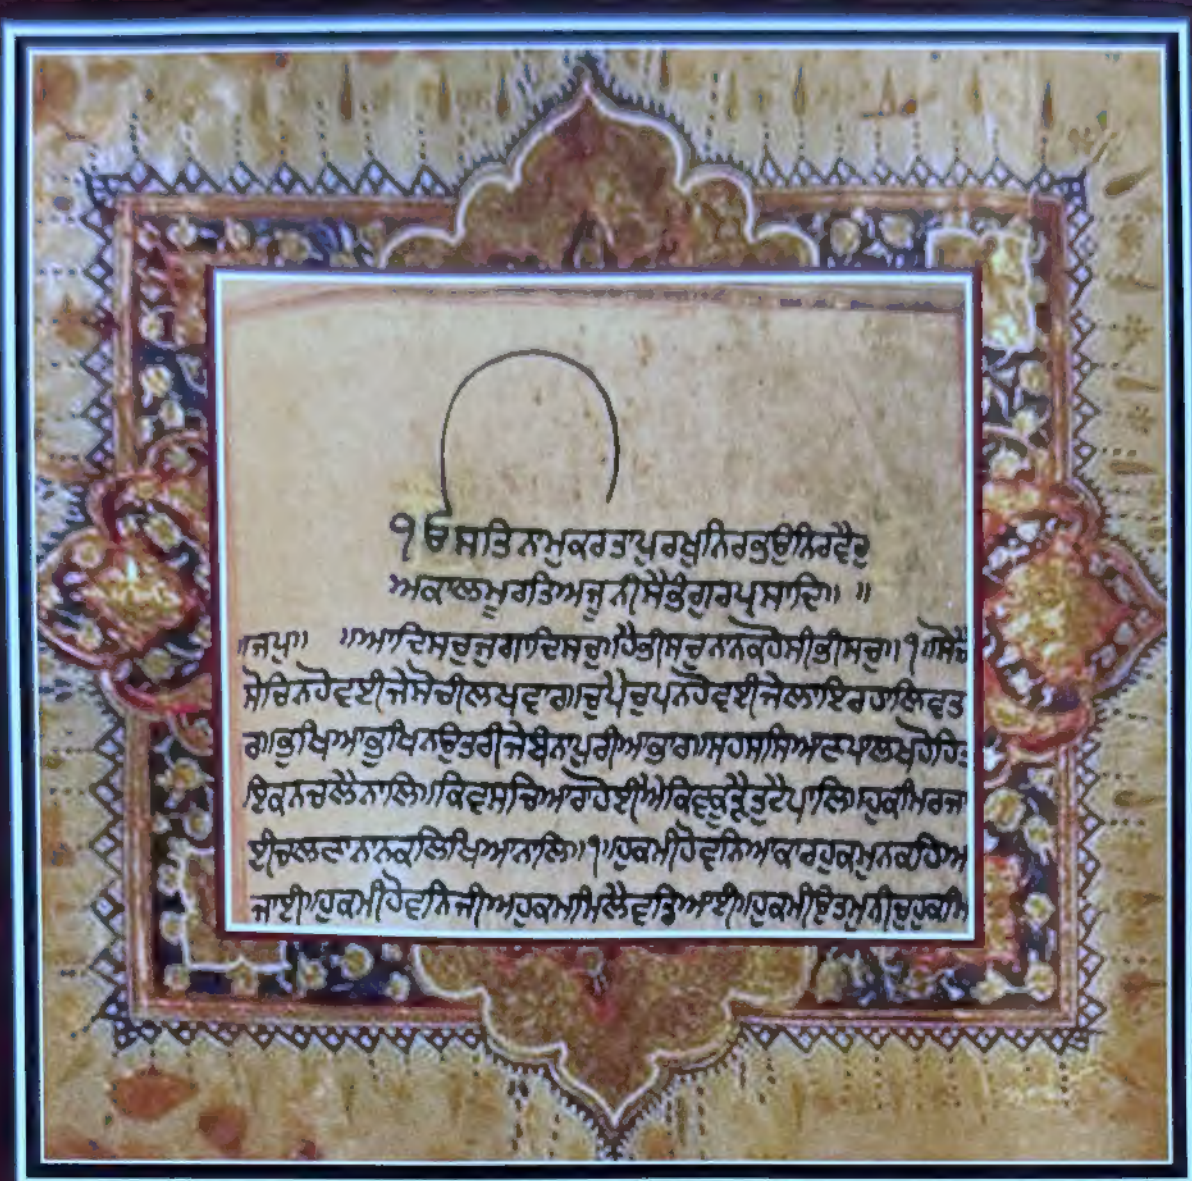 ੴ ਸਤਿਨਾਮੁਕਰਤਾਪੁਰਖੁਨਿਰਭਉਨਿਰਵੈਰੁ
ਅਕਾਲਮੂਰਤਿਅਜੂਨੀਸੈਭੰਗੁਰਪ੍ਰਸਾਦਿ॥ ॥
॥ਜਪੁ॥ ॥ਆਦਿਸਚੁਜੁਗਾਦਿਸਚੁ॥ਹੈਭੀਸਚੁਨਾਨਕਹੋਸੀਭੀਸਚੁ॥੧॥ਸੋਚੈ
ਸੋਚਿਨਹੋਵਈਜੇਸੋਚੀਲਖਵਾਰ॥ਚੁਪੈਚੁਪਨਹੋਵਈਜੇਲਾਇਰਹਾਲਿਵਤਾ
ਰ॥ਭੁਖਿਆਭੁਖਨਉਤਰੀਜੇਬੰਨਾਪੁਰੀਆਭਾਰ॥ਸਹਸਸਿਆਣਪਾਲਖਹੋਹਿਤ
ਇਕਨਚਲੈਨਾਲਿ॥ਕਿਵਸਚਿਆਰਾਹੋਈਐਕਿਵਕੂੜੈਤੁਟੈਪਾਲਿ॥ਹੁਕਮਿਰਜਾ
ਈਚਲਣਾਨਾਨਕਲਿਖਿਆਨਾਲਿ॥੧॥ਹੁਕਮੀਹੋਵਨਿਆਕਾਰਹੁਕਮੁਨਕਹਿਆ
ਜਾਈ॥ਹੁਕਮੀਹੋਵਨਿਜੀਅਹੁਕਮੀਮਿਲੈਵਡਿਆਈ॥ਹੁਕਮੀਉਤਮੁਨੀਚੁਹੁਕਮਿ